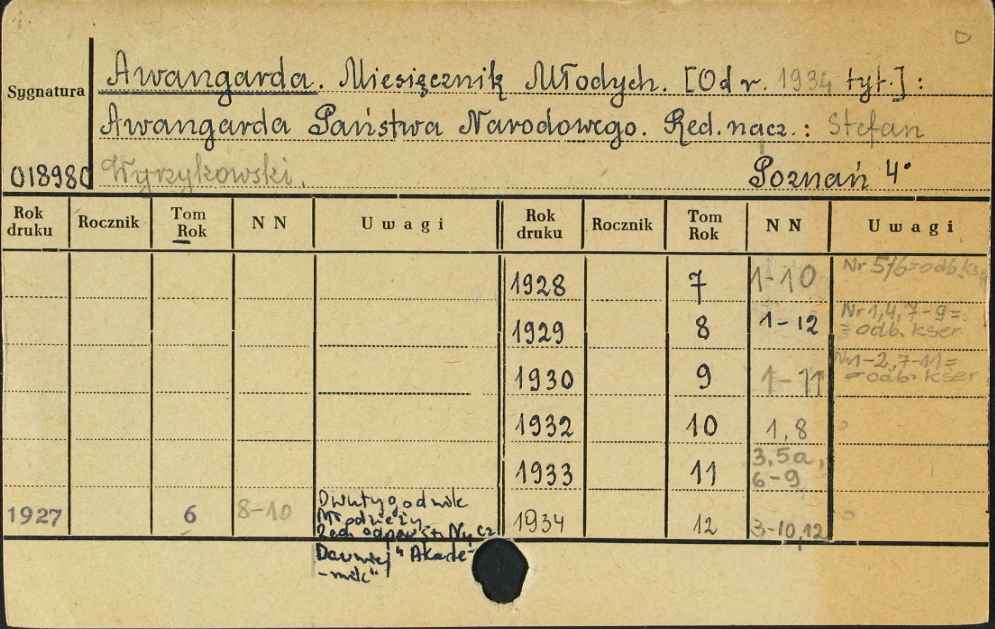 Awangarda. Miesięcznik Młodych. [Od r. 1934 tyt.]:
Sygnatura
Awangarda Państwa Narodowego. Red. nacz.: Stefan
018980 Wyrzykowski. Poznań 4°
Rok druku Rocznik Tom Rok N N Uwagi Rok druku Rocznik Tom Rok N N Uwagi
1928 7 1-10 Nr 5/6=odb. kser
1929 8 1-12 Nr 1,4,7-9=
=odb. kser
1930 9 1-11 Nr 1-2, 7-11=
=odb. kser
1932 10 1,8
1933 11 3,5a,
6-9
1927 6 8-10 Dwutygodnik
Młodzieży.
1934 12 3-10,12
Dawniej "Akade-
-mik"